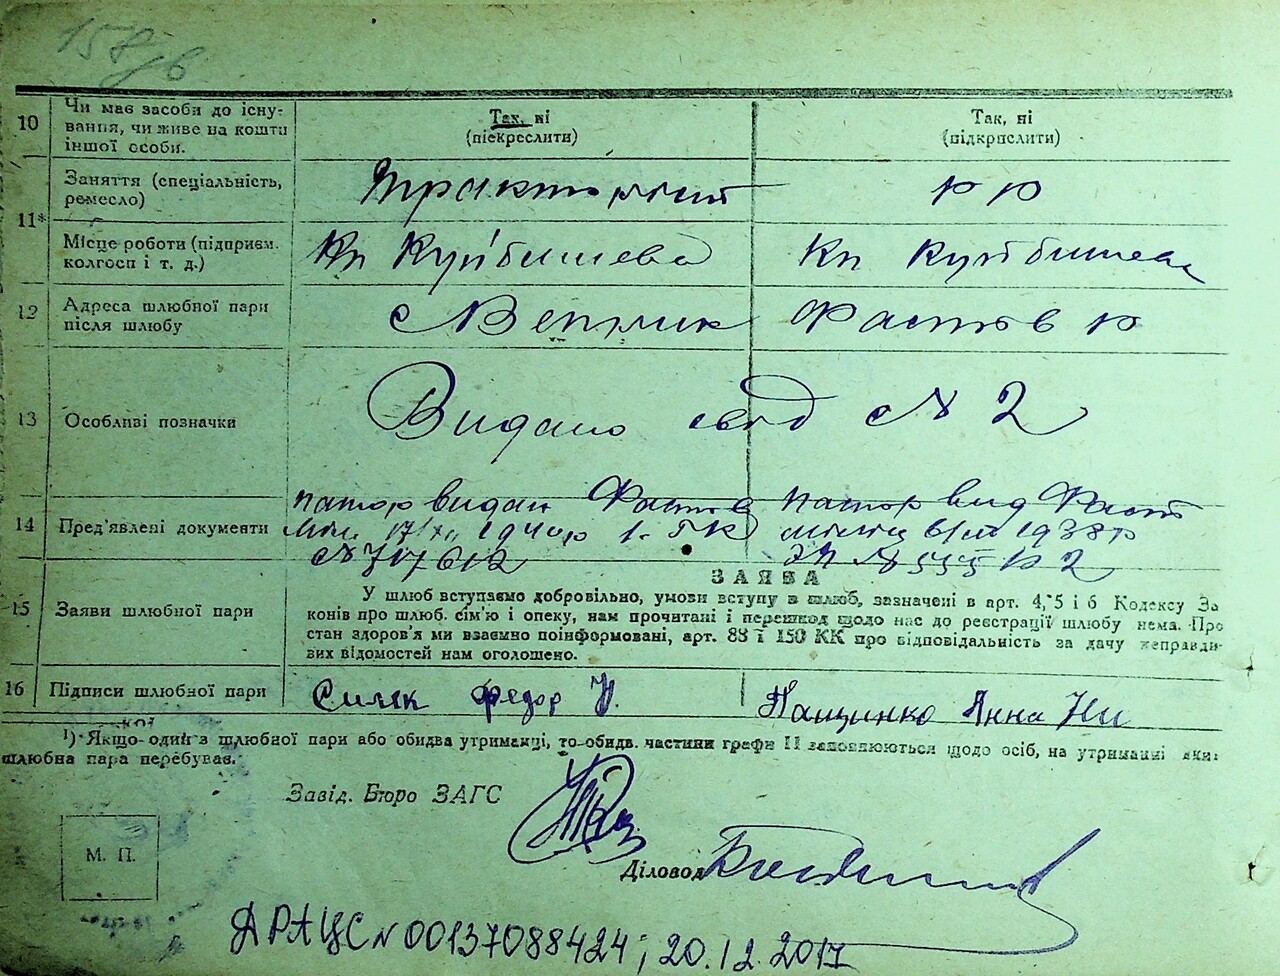 158 зв
10 Чи має засоби до існу-
вання, чи живе на кошти
іншої особи.
Так, ні
(підкреслити)
Так, ні
(підкрислити)
11*
Заняття (спеціальність,
ремесло)
Тракторист
р р
Місце роботи (підприєм.
колгосп і т. д.)
Кп Куйбишева
Кп Куйбишева
12 Адреса шлюбної пари
після шлюбу
с Веприк Фастов р
13 Особливі позначки
Видано свід с № 2
14 Пред'явлені документи
паспор видан Фастов
1940р
№ 717612
паспор вид Фаст
міліц 1938р
№ 555 р 2
ЗАЯВА
15 Заяви шлюбної пари
У шлюб вступаємо добровільно, умови вступу в шлюб, зазначені в арт. 4, 5 і 6 Кодексу За
конів про шлюб. сім'ю і опеку, нам прочитані і перешкод щодо нас до реєстрації шлюбу нема. Про
стан здоров'я ми взаємно поінформовані, арт. 88 і 150 КК про відповідальність за дачу неправди-
вих відомостей нам оголошено.
16 Підписи шлюбної пари
Силек Федор И.
Пащинко Анна Ни
¹) Якщо один з шлюбної пари або обидва утриманці, то обидв. частини графи 11 заповнюються щодо осіб, на утриманні яких
шлюбна пара перебуває.
Завід. Бюро ЗАГС
М. П.
Діловод
ДРАЦС № 00137088424; 20.12.2017